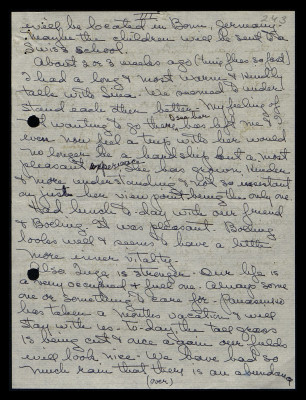 III
243
will be located in Bonn, Germany -
maybe the children will be sent to a
Swiss school.
About 2 or 3 weeks ago (time flies so fast)
I had a long & most warm & friendly
talk with Lina. We seemed to under
stand each other better. My feeling of
not wanting to go there, has left me & I
even now feel a trip with her would
no longer be a hardship but a most
pleasant experience. She has grown kinder
& more understanding & not so insistant
on just her view point being the only one
Had lunch to-day with our friend
& Boeling. It was pleasant. Boeling
looks well & seems to have a little
more inner vitality.
Also Inga is stronger. Our life is
a very occupied & full one. Always some
one or something to care for.
has taken a months vacation & will
stay with us. to-day the tall grass
is being cut & once again our fields
will look nice. We have had so
much rain that there is an abundance
(over)